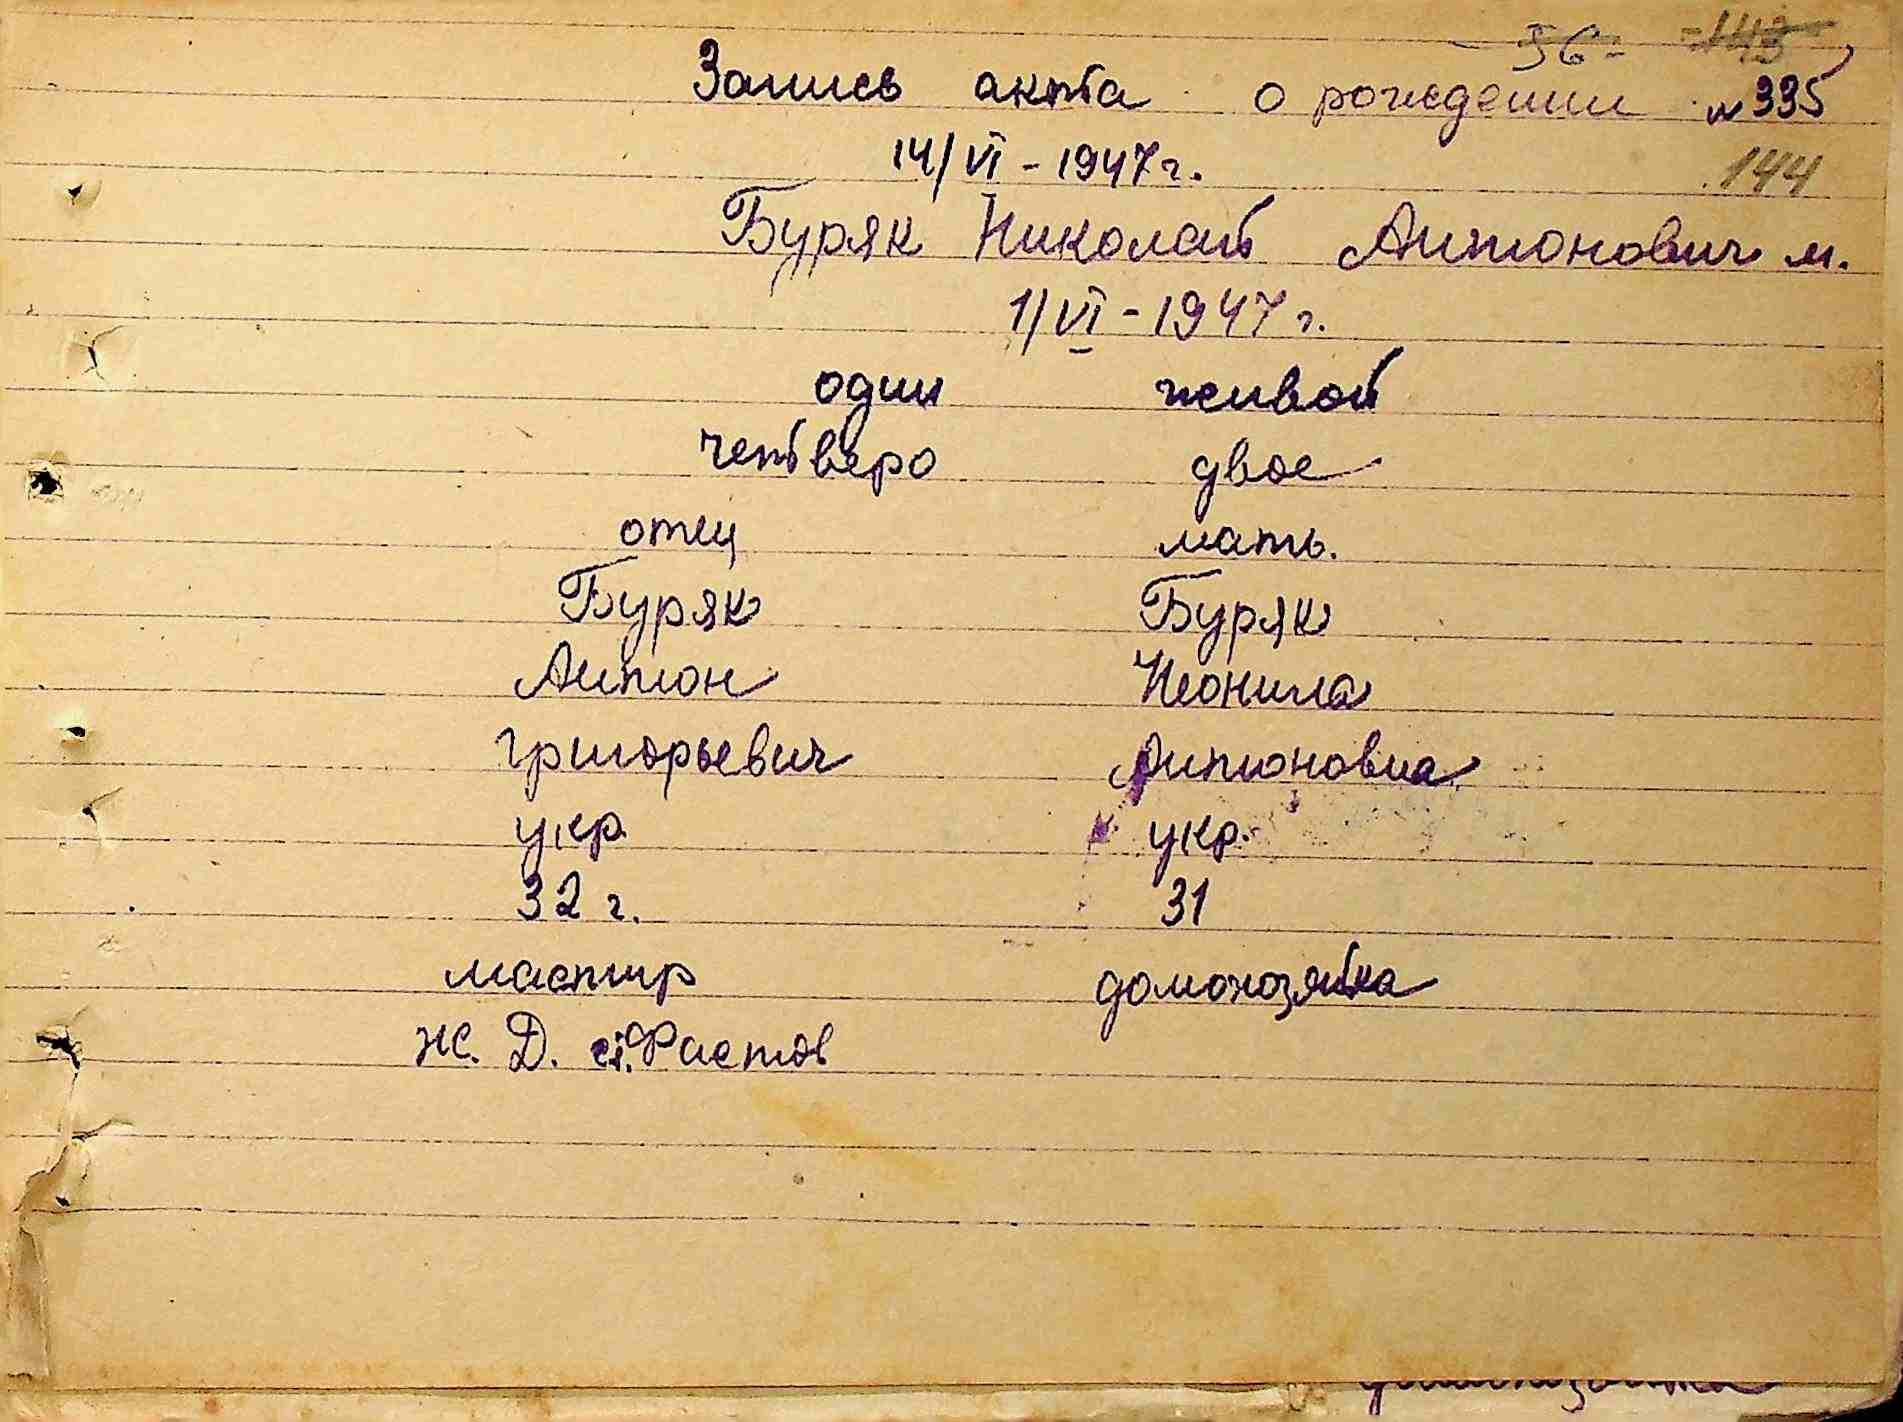 56- -143
Запись акта о рождении №335
14/VI - 1947г.
144
Буряк Николай Антонович м.
1/VI - 1947 г.
один живой
четверо двое
отец мать.
Буряк Буряк
Антон Неонила
Григорьевич Антоновна
укр. укр.
32 г. 31
мастер домохозяйка
Ж. Д. ст. Фастов
домохозяйка